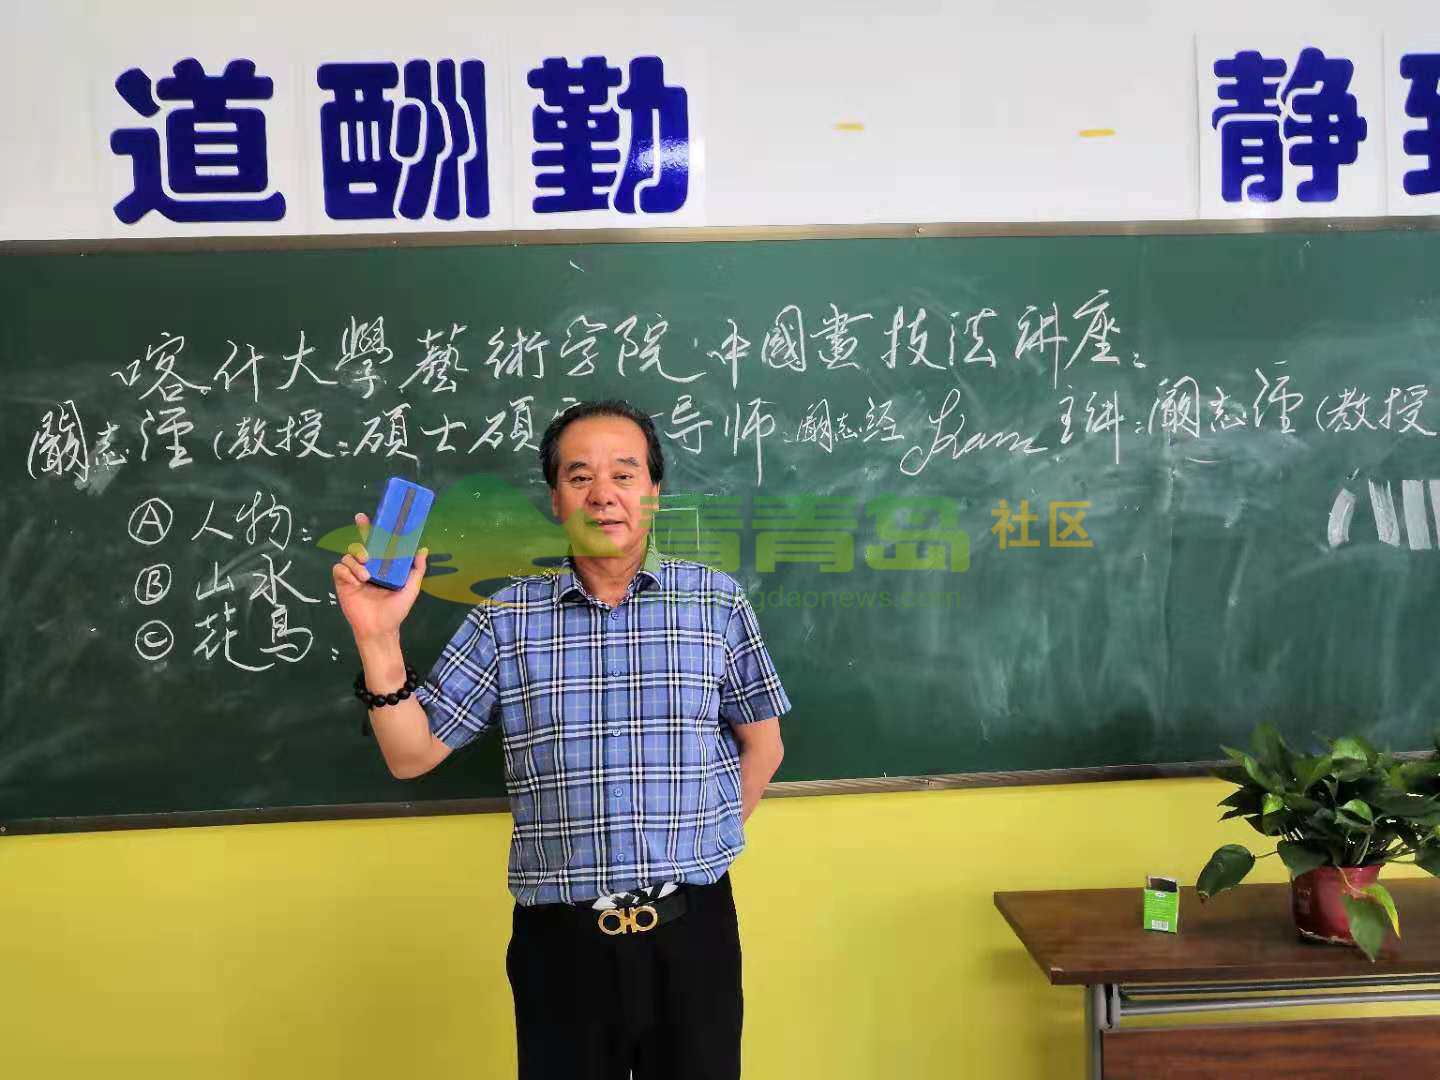 道酬勤 静
喀什大學藝術学院·中國畫技法讲座：
阚志經（教授：硕士硕导师：阚志经 主讲：阚志經（教授
Ⓐ 人物：
Ⓑ 山水：
Ⓒ 花鸟：
青青岛 社区
gdaonews.com